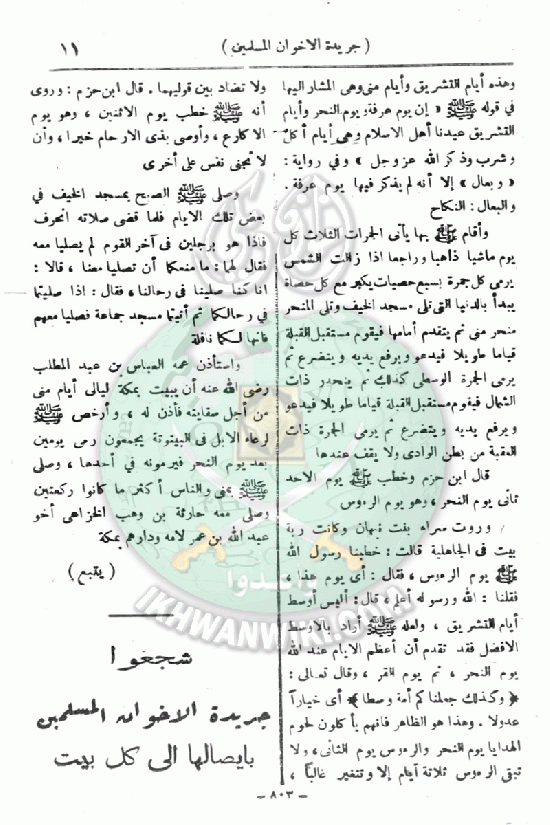 ١١
( جريدة الاخوان المسلمين )
وهذه أيام التشريق وأيام منى وهى المشار اليها
في قوله ﷺ « إن يوم عرفة ويوم النحر وأيام
التشريق عيدنا أهل الاسلام وهى أيام أكل
وشرب وذكر الله عز وجل » وفي رواية :
« وبعال » إلا أنه لم يذكر فيها يوم عرفة .
والبعال : النكاح
وأقام ﷺ بها يأتى الجمرات الثلاث كل
يوم ماشيا ذاهبا وراجعا اذا زالت الشمس
يرمى كل جمرة بسبع حصيات يكبر مع كل حصاة
يبدأ بالدنيا التى تلى مسجد الخيف وتلى المنحر
منحر منى ثم يتقدم أمامها فيقوم مستقبل القبلة
قياما طويلا فيدعو ويرفع يديه ويتضرع ثم
يرمى الجمرة الوسطى كذلك ثم ينحدر ذات
الشمال فيقوم مستقبل القبلة قياما طويلا فيدعو
ويرفع يديه ويتضرع ثم يرمى الجمرة ذات
العقبة من بطن الوادى ولا يقف عندها
قال ابن حزم وخطب ﷺ يوم الاحد
ثانى يوم النحر ، وهو يوم الرءوس
وروت سراء بنت نبهان وكانت ربة
بيت فى الجاهلية قالت : خطبنا رسول الله
ﷺ يوم الرءوس ، فقال : أى يوم هذا ،
فقلنا : الله ورسوله أعلم ، قال : أليس أوسط
أيام التشريق ، ولعله ﷺ أراد بالاوسط
الافضل فقد تقدم أن أعظم الايام عند الله
يوم النحر ، ثم يوم القر ، وقال تعالى :
« وكذلك جعلناكم أمة وسطا » أى خياراً
عدولا . وهذا هو الظاهر فانهم يأكلون لحوم
الهدايا يوم النحر والرءوس يوم الثانى ، ولا
تبقى الرءوس ثلاثة أيام إلا وتتغير غالباً ،
ولا تضاد بين قوليهما . قال ابن حزم : وروى
أنه ﷺ خطب يوم الاثنين ، وهو يوم
الاكارع ، وأوصى بذى الارحام خيرا ، وأن
لا تجنى نفس على أخرى
وصلى ﷺ الصبح بمسجد الخيف في
بعض تلك الايام فلما قضى صلاته انحرف
فاذا هو برجلين فى آخر القوم لم يصليا معه
فقال لهما : ما منعكما أن تصليا معنا ، قالا :
انا كنا صلينا فى رحالنا ، فقال : اذا صليتما
فى رحالكما ثم أتيتما مسجد جماعة فصليا معهم
فانها لكما نافلة
واستأذن عمه العباس بن عبد المطلب
رضى الله عنه أن يبيت بمكة ليالى أيام منى
من أجل سقايته فأذن له ، وأرخص ﷺ
لرعاء الابل فى البيتوتة يجمعون رمى يومين
بعد يوم النحر فيرمونه فى أحدها ، وصلى
ﷺ بمنى والناس أكثر ما كانوا ركعتين
وصلى معه حارثة بن وهب الخزاعى أخو
عبد الله بن عمر لامه ودارهم بمكة
( يتبع )
شجعوا
جريدة الاخوان المسلمين
بايصالها الى كل بيت
- ٨٠٣ -
وأعدوا
IKHWANWIKI.COM